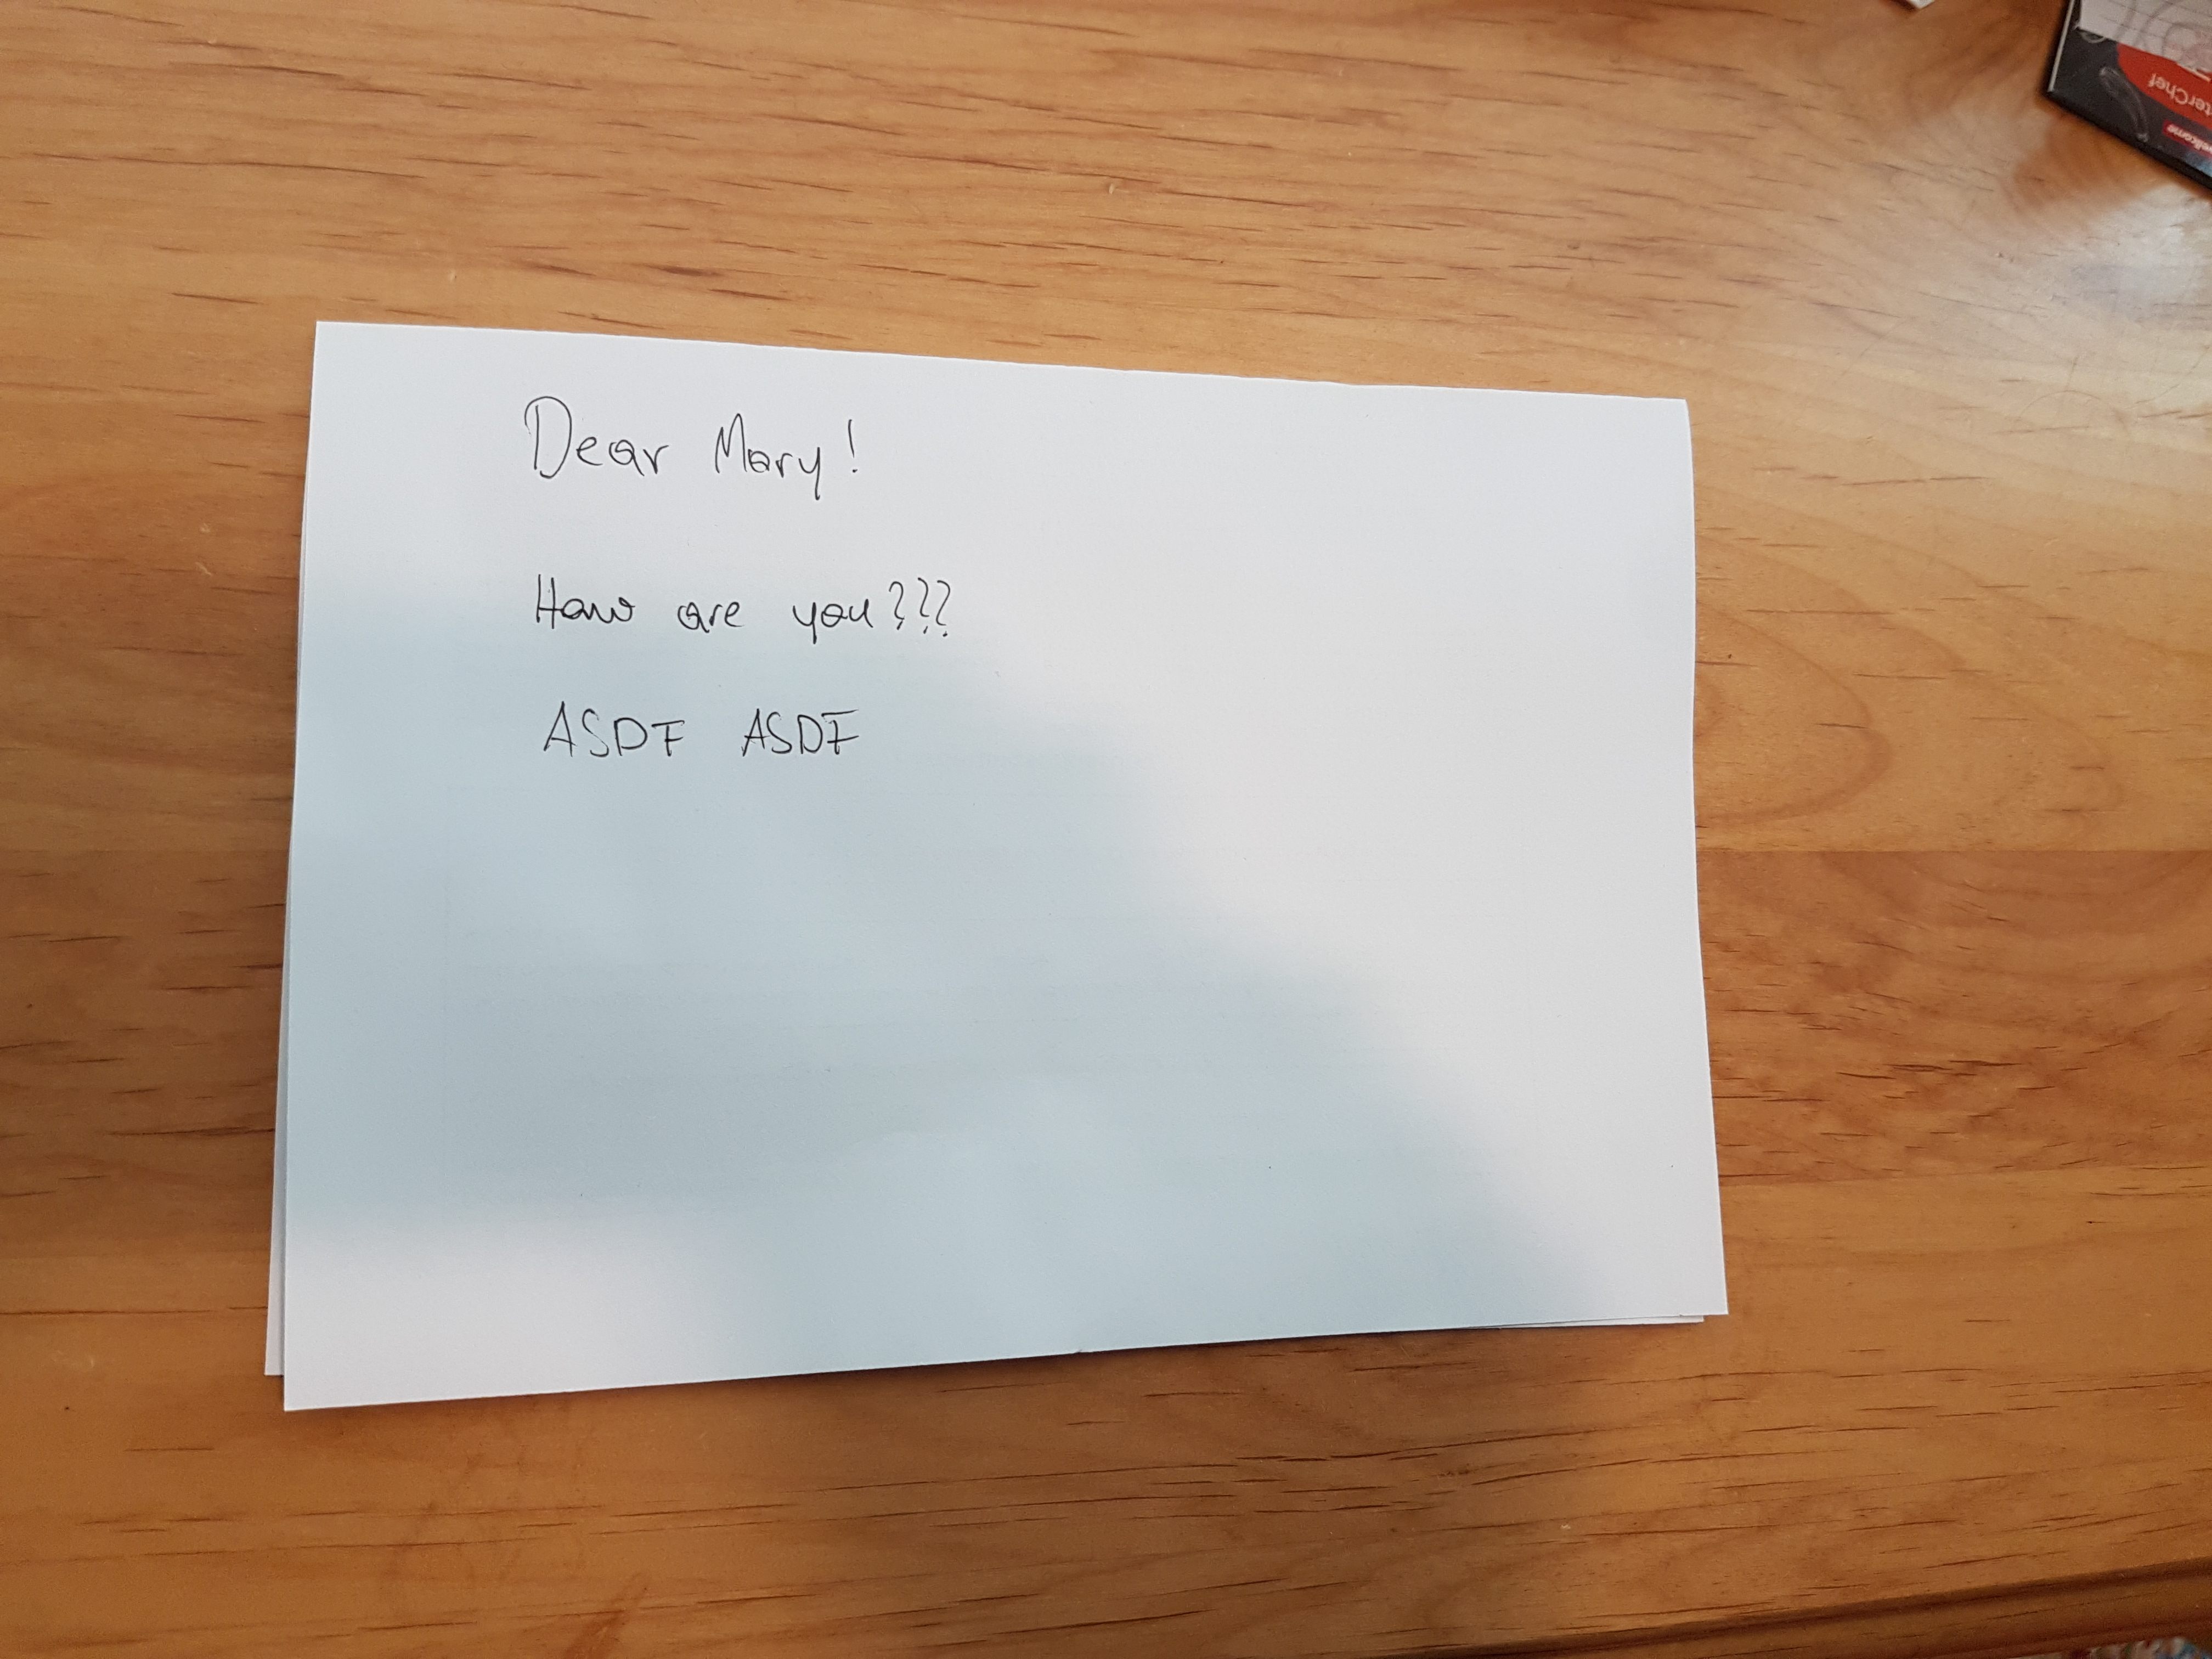 Dear Mary!
How are you???
ASDF ASDF
terChef